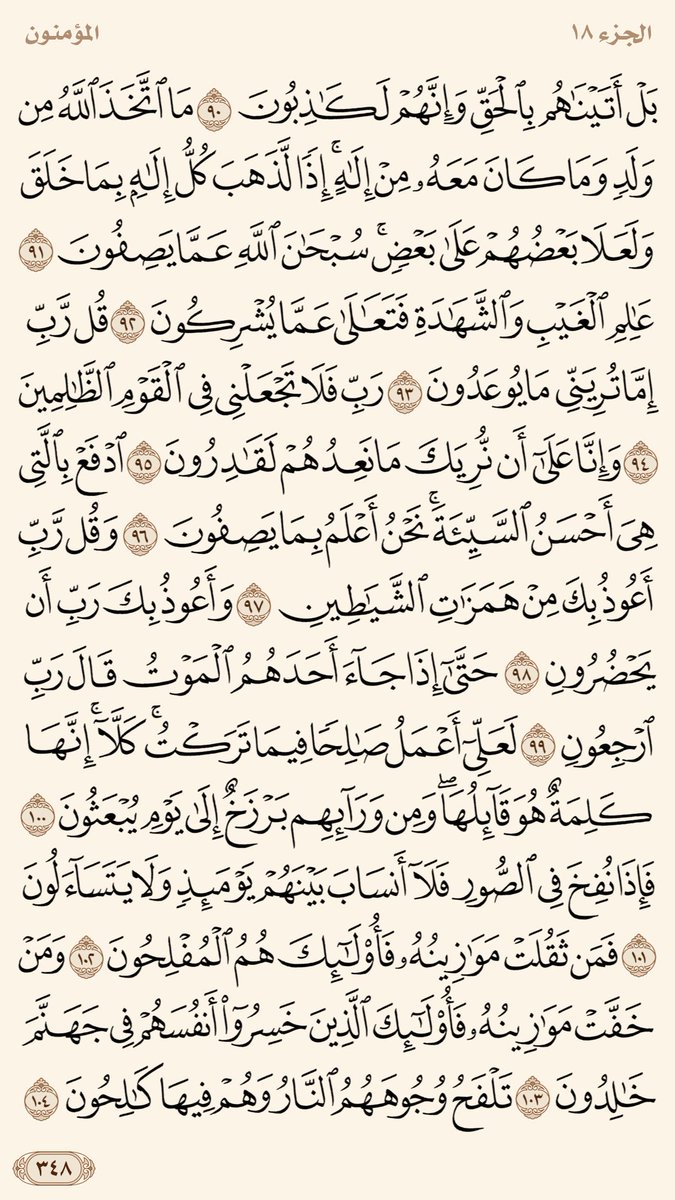 الجزء ١٨ المؤمنون
بَلْ أَتَيْنَٰهُم بِٱلْحَقِّ وَإِنَّهُمْ لَكَٰذِبُونَ ٩٠ مَا ٱتَّخَذَ ٱللَّهُ مِن
وَلَدٍ وَمَا كَانَ مَعَهُۥ مِنْ إِلَٰهٍ ۚ إِذًا لَّذَهَبَ كُلُّ إِلَٰهٍۭ بِمَا خَلَقَ
وَلَعَلَا بَعْضُهُمْ عَلَىٰ بَعْضٍ ۚ سُبْحَٰنَ ٱللَّهِ عَمَّا يَصِفُونَ ٩١
عَٰلِمِ ٱلْغَيْبِ وَٱلشَّهَٰدَةِ فَتَعَٰلَىٰ عَمَّا يُشْرِكُونَ ٩٢ قُل رَّبِّ
إِمَّا تُرِيَنِّى مَا يُوعَدُونَ ٩٣ رَبِّ فَلَا تَجْعَلْنِى فِى ٱلْقَوْمِ ٱلظَّٰلِمِينَ
٩٤ وَإِنَّا عَلَىٰٓ أَن نُّرِيَكَ مَا نَعِدُهُمْ لَقَٰدِرُونَ ٩٥ ٱدْفَعْ بِٱلَّتِى
هِىَ أَحْسَنُ ٱلسَّيِّئَةَ ۚ نَحْنُ أَعْلَمُ بِمَا يَصِفُونَ ٩٦ وَقُل رَّبِّ
أَعُوذُ بِكَ مِنْ هَمَزَٰتِ ٱلشَّيَٰطِينِ ٩٧ وَأَعُوذُ بِكَ رَبِّ أَن
يَحْضُرُونِ ٩٨ حَتَّىٰٓ إِذَا جَآءَ أَحَدَهُمُ ٱلْمَوْتُ قَالَ رَبِّ
ٱرْجِعُونِ ٩٩ لَعَلِّىٓ أَعْمَلُ صَٰلِحًا فِيمَا تَرَكْتُ ۚ كَلَّآ ۚ إِنَّهَا
كَلِمَةٌ هُوَ قَآئِلُهَا ۖ وَمِن وَرَآئِهِم بَرْزَخٌ إِلَىٰ يَوْمِ يُبْعَثُونَ ١٠٠
فَإِذَا نُفِخَ فِى ٱلصُّورِ فَلَآ أَنسَابَ بَيْنَهُمْ يَوْمَئِذٍ وَلَا يَتَسَآءَلُونَ
١٠١ فَمَن ثَقُلَتْ مَوَٰزِينُهُۥ فَأُو۟لَٰٓئِكَ هُمُ ٱلْمُفْلِحُونَ ١٠٢ وَمَنْ
خَفَّتْ مَوَٰزِينُهُۥ فَأُو۟لَٰٓئِكَ ٱلَّذِينَ خَسِرُوٓا۟ أَنفُسَهُمْ فِى جَهَنَّمَ
خَٰلِدُونَ ١٠٣ تَلْفَحُ وُجُوهَهُمُ ٱلنَّارُ وَهُمْ فِيهَا كَٰلِحُونَ ١٠٤
٣٤٨